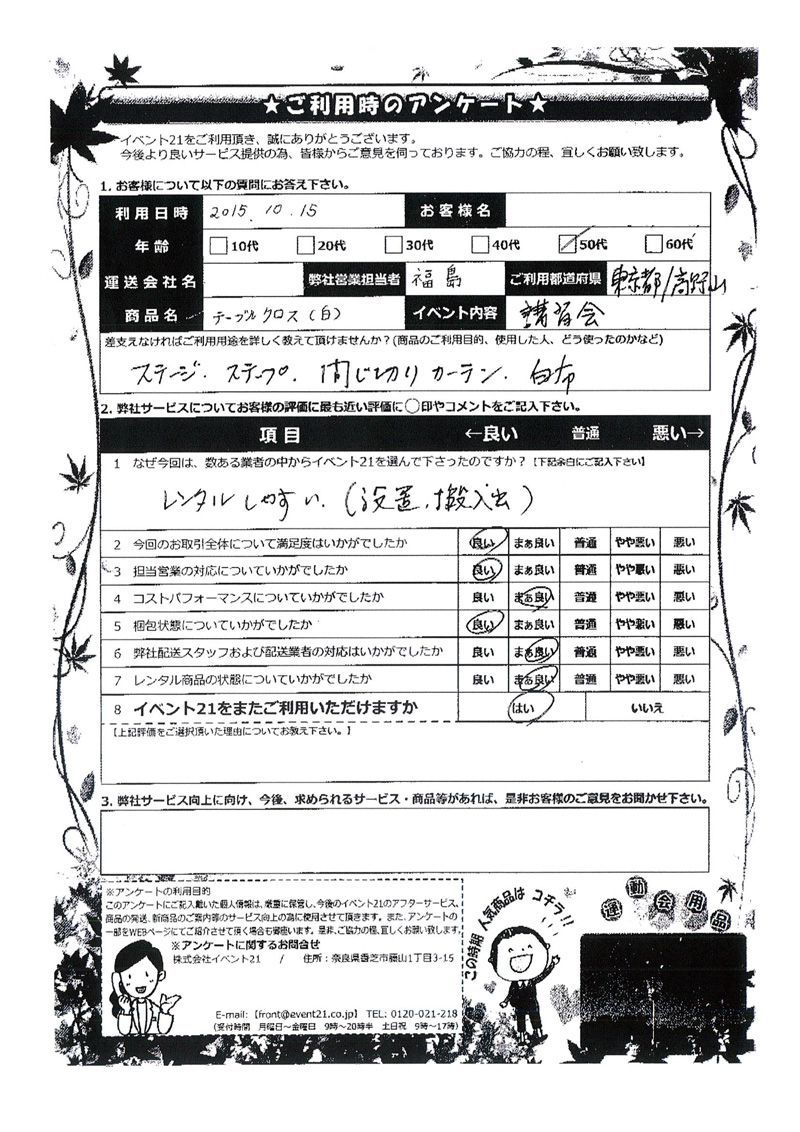 ★ご利用時のアンケート★
イベント21をご利用頂き、誠にありがとうございます。
今後より良いサービス提供の為、皆様からご意見を伺っております。ご協力の程、宜しくお願い致します。
1. お客様について以下の質問にお答え下さい。
利用日時 2015. 10. 15 お客様名
年齢 10代 20代 30代 40代 50代 60代
運送会社名 弊社営業担当者 福島 ご利用都道府県 東京都/高野山
商品名 テーブルクロス(白) イベント内容 講習会
差支えなければご利用用途を詳しく教えて頂けませんか?(商品のご利用目的、使用した人、どう使ったのかなど)
ステージ. ステップ. 間じ切りカーテン. 白布
2. 弊社サービスについてお客様の評価に最も近い評価に○印やコメントをご記入下さい。
項目 ←良い 普通 悪い→
1 なぜ今回は、数ある業者の中からイベント21を選んで下さったのですか?【下記余白にご記入下さい】
レンタルしやすい. (設置. 搬入出)
2 今回のお取引全体について満足度はいかがでしたか 良い まぁ良い 普通 やや悪い 悪い
3 担当営業の対応についていかがでしたか 良い まぁ良い 普通 やや悪い 悪い
4 コストパフォーマンスについていかがでしたか 良い まぁ良い 普通 やや悪い 悪い
5 梱包状態についていかがでしたか 良い まぁ良い 普通 やや悪い 悪い
6 弊社配送スタッフおよび配送業者の対応はいかがでしたか 良い まぁ良い 普通 やや悪い 悪い
7 レンタル商品の状態についていかがでしたか 良い まぁ良い 普通 やや悪い 悪い
8 イベント21をまたご利用いただけますか はい いいえ
【上記評価をご選択頂いた理由についてお教え下さい。】
3. 弊社サービス向上に向け、今後、求められるサービス・商品等があれば、是非お客様のご意見をお聞かせ下さい。
※アンケートの利用目的
このアンケートにご記入戴いた個人情報は、厳重に保管し、今後のイベント21のアフターサービス、
商品の発送、新商品のご案内等のサービス向上の為に使用させて頂きます。また、アンケートの
一部をWEBページにてご紹介させて頂く場合も御座います。是非、ご協力の程、宜しくお願い致します。
※アンケートに関するお問合せ
株式会社イベント21 / 住所:奈良県香芝市藤山1丁目3-15
E-mail:【front@event21.co.jp】 TEL: 0120-021-218
(受付時間 月曜日~金曜日 9時~20時半 土日祝 9時~17時)
この時期 人気商品は コチラ!!
運動会用品